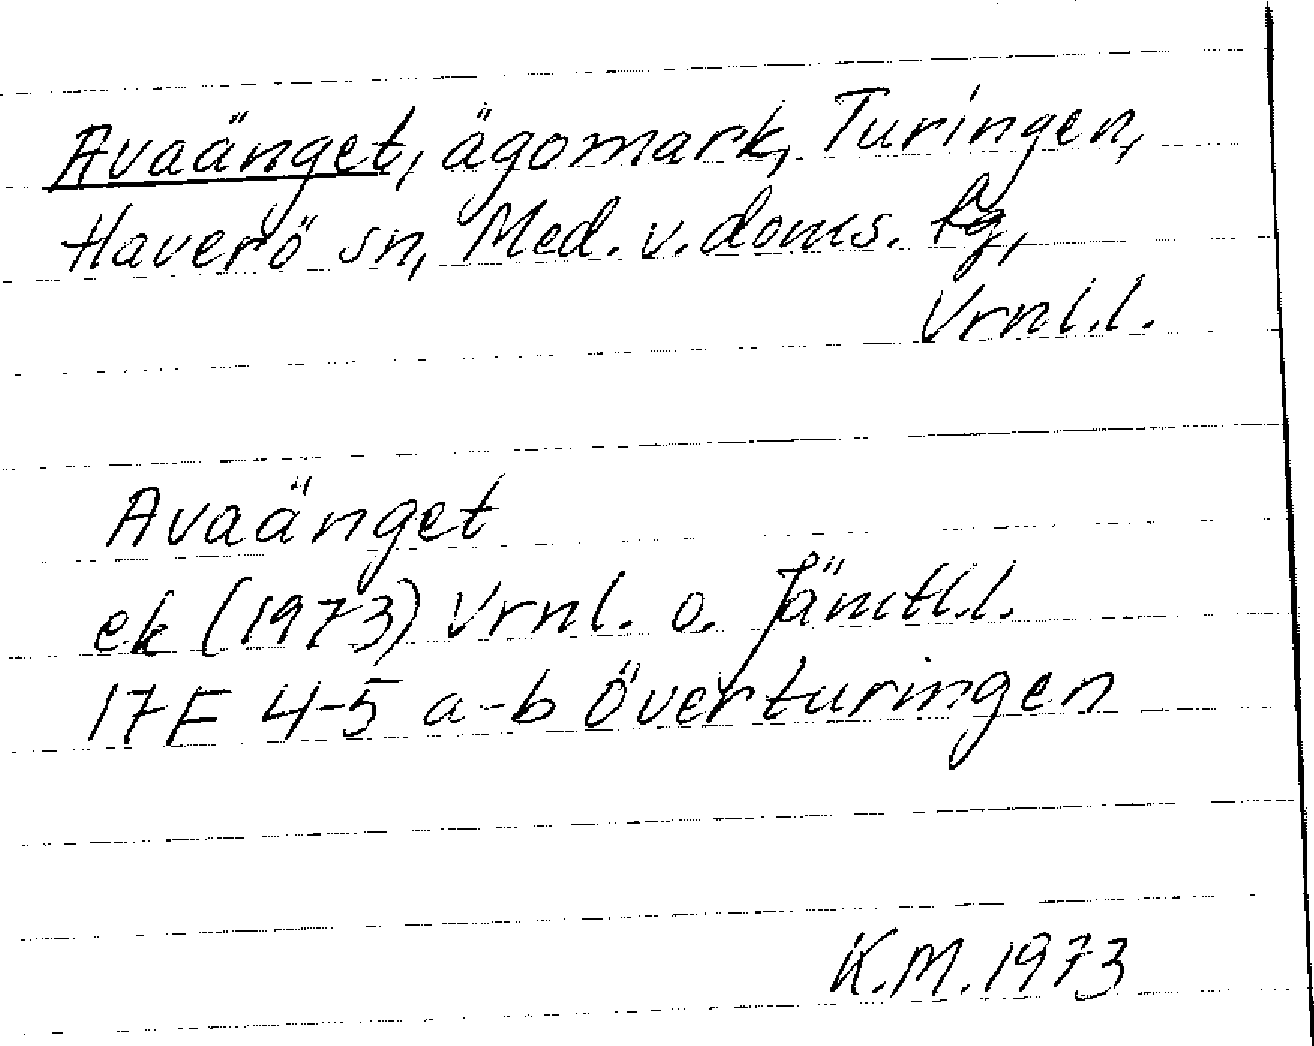 Avaänget, ägomark, Turingen,
Haverö sn, Med. v. doms. tg,
Vrnl.l.
Avaänget
ek (1973) Vrnl. o. Jämtl.l.
17F 4-5 a-b Överturingen
K.M. 1973